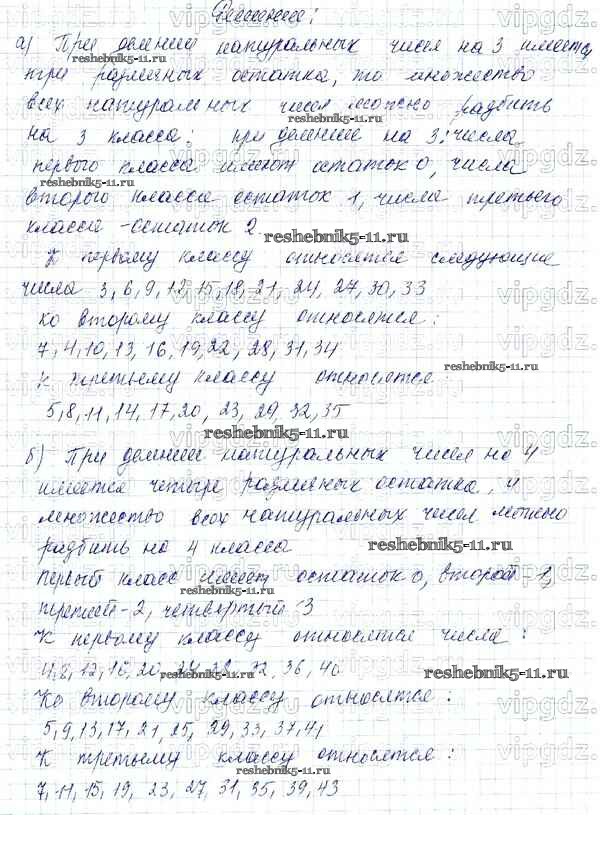 Решение:
а) При делении натуральных чисел на 3 имеется
три различных остатка, то множество
всех натуральных чисел можно разбить
reshebnik5-11.ru
на 3 класса: при делении на 3: числа
первого класса имеют остаток 0, числа
reshebnik5-11.ru
второго класса остаток 1, числа третьего
класса - остаток 2
reshebnik5-11.ru
К первому классу относятся следующие
числа 3, 6, 9, 12, 15, 18, 21, 24, 27, 30, 33
ко второму классу относятся:
7, 4, 10, 13, 16, 19, 22, 28, 31, 34
reshebnik5-11.ru
К третьему классу относятся:
5, 8, 11, 14, 17, 20, 23, 29, 32, 35
reshebnik5-11.ru
б) При делении натуральных чисел на 4
имеется четыре различных остатка, и
множество всех натуральных чисел можно
разбить на 4 класса
reshebnik5-11.ru
Первый класс имеет остаток 0, второй - 1,
reshebnik5-11.ru
третий - 2, четвертый 3
К первому классу относятся числа:
4, 8, 12, 16, 20, 24, 28, 32, 36, 40
reshebnik5-11.ru
Ко второму классу относятся:
5, 9, 13, 17, 21, 25, 29, 33, 37, 41
К третьему классу относятся:
reshebnik5-11.ru
7, 11, 15, 19, 23, 27, 31, 35, 39, 43
reshebnik5-11.ru
vipgdz.